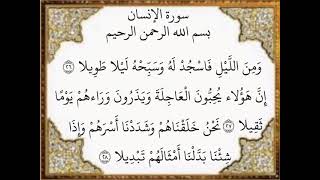 سورة الإنسان
بسم الله الرحمن الرحيم
وَمِنَ اللَّيْلِ فَاسْجُدْ لَهُ وَسَبِّحْهُ لَيْلًا طَوِيلًا ﴿٢٦﴾
إِنَّ هَؤُلَاءِ يُحِبُّونَ الْعَاجِلَةَ وَيَذَرُونَ وَرَاءَهُمْ يَوْمًا
ثَقِيلًا ﴿٢٧﴾ نَحْنُ خَلَقْنَاهُمْ وَشَدَدْنَا أَسْرَهُمْ وَإِذَا
شِئْنَا بَدَّلْنَا أَمْثَالَهُمْ تَبْدِيلًا ﴿٢٨﴾